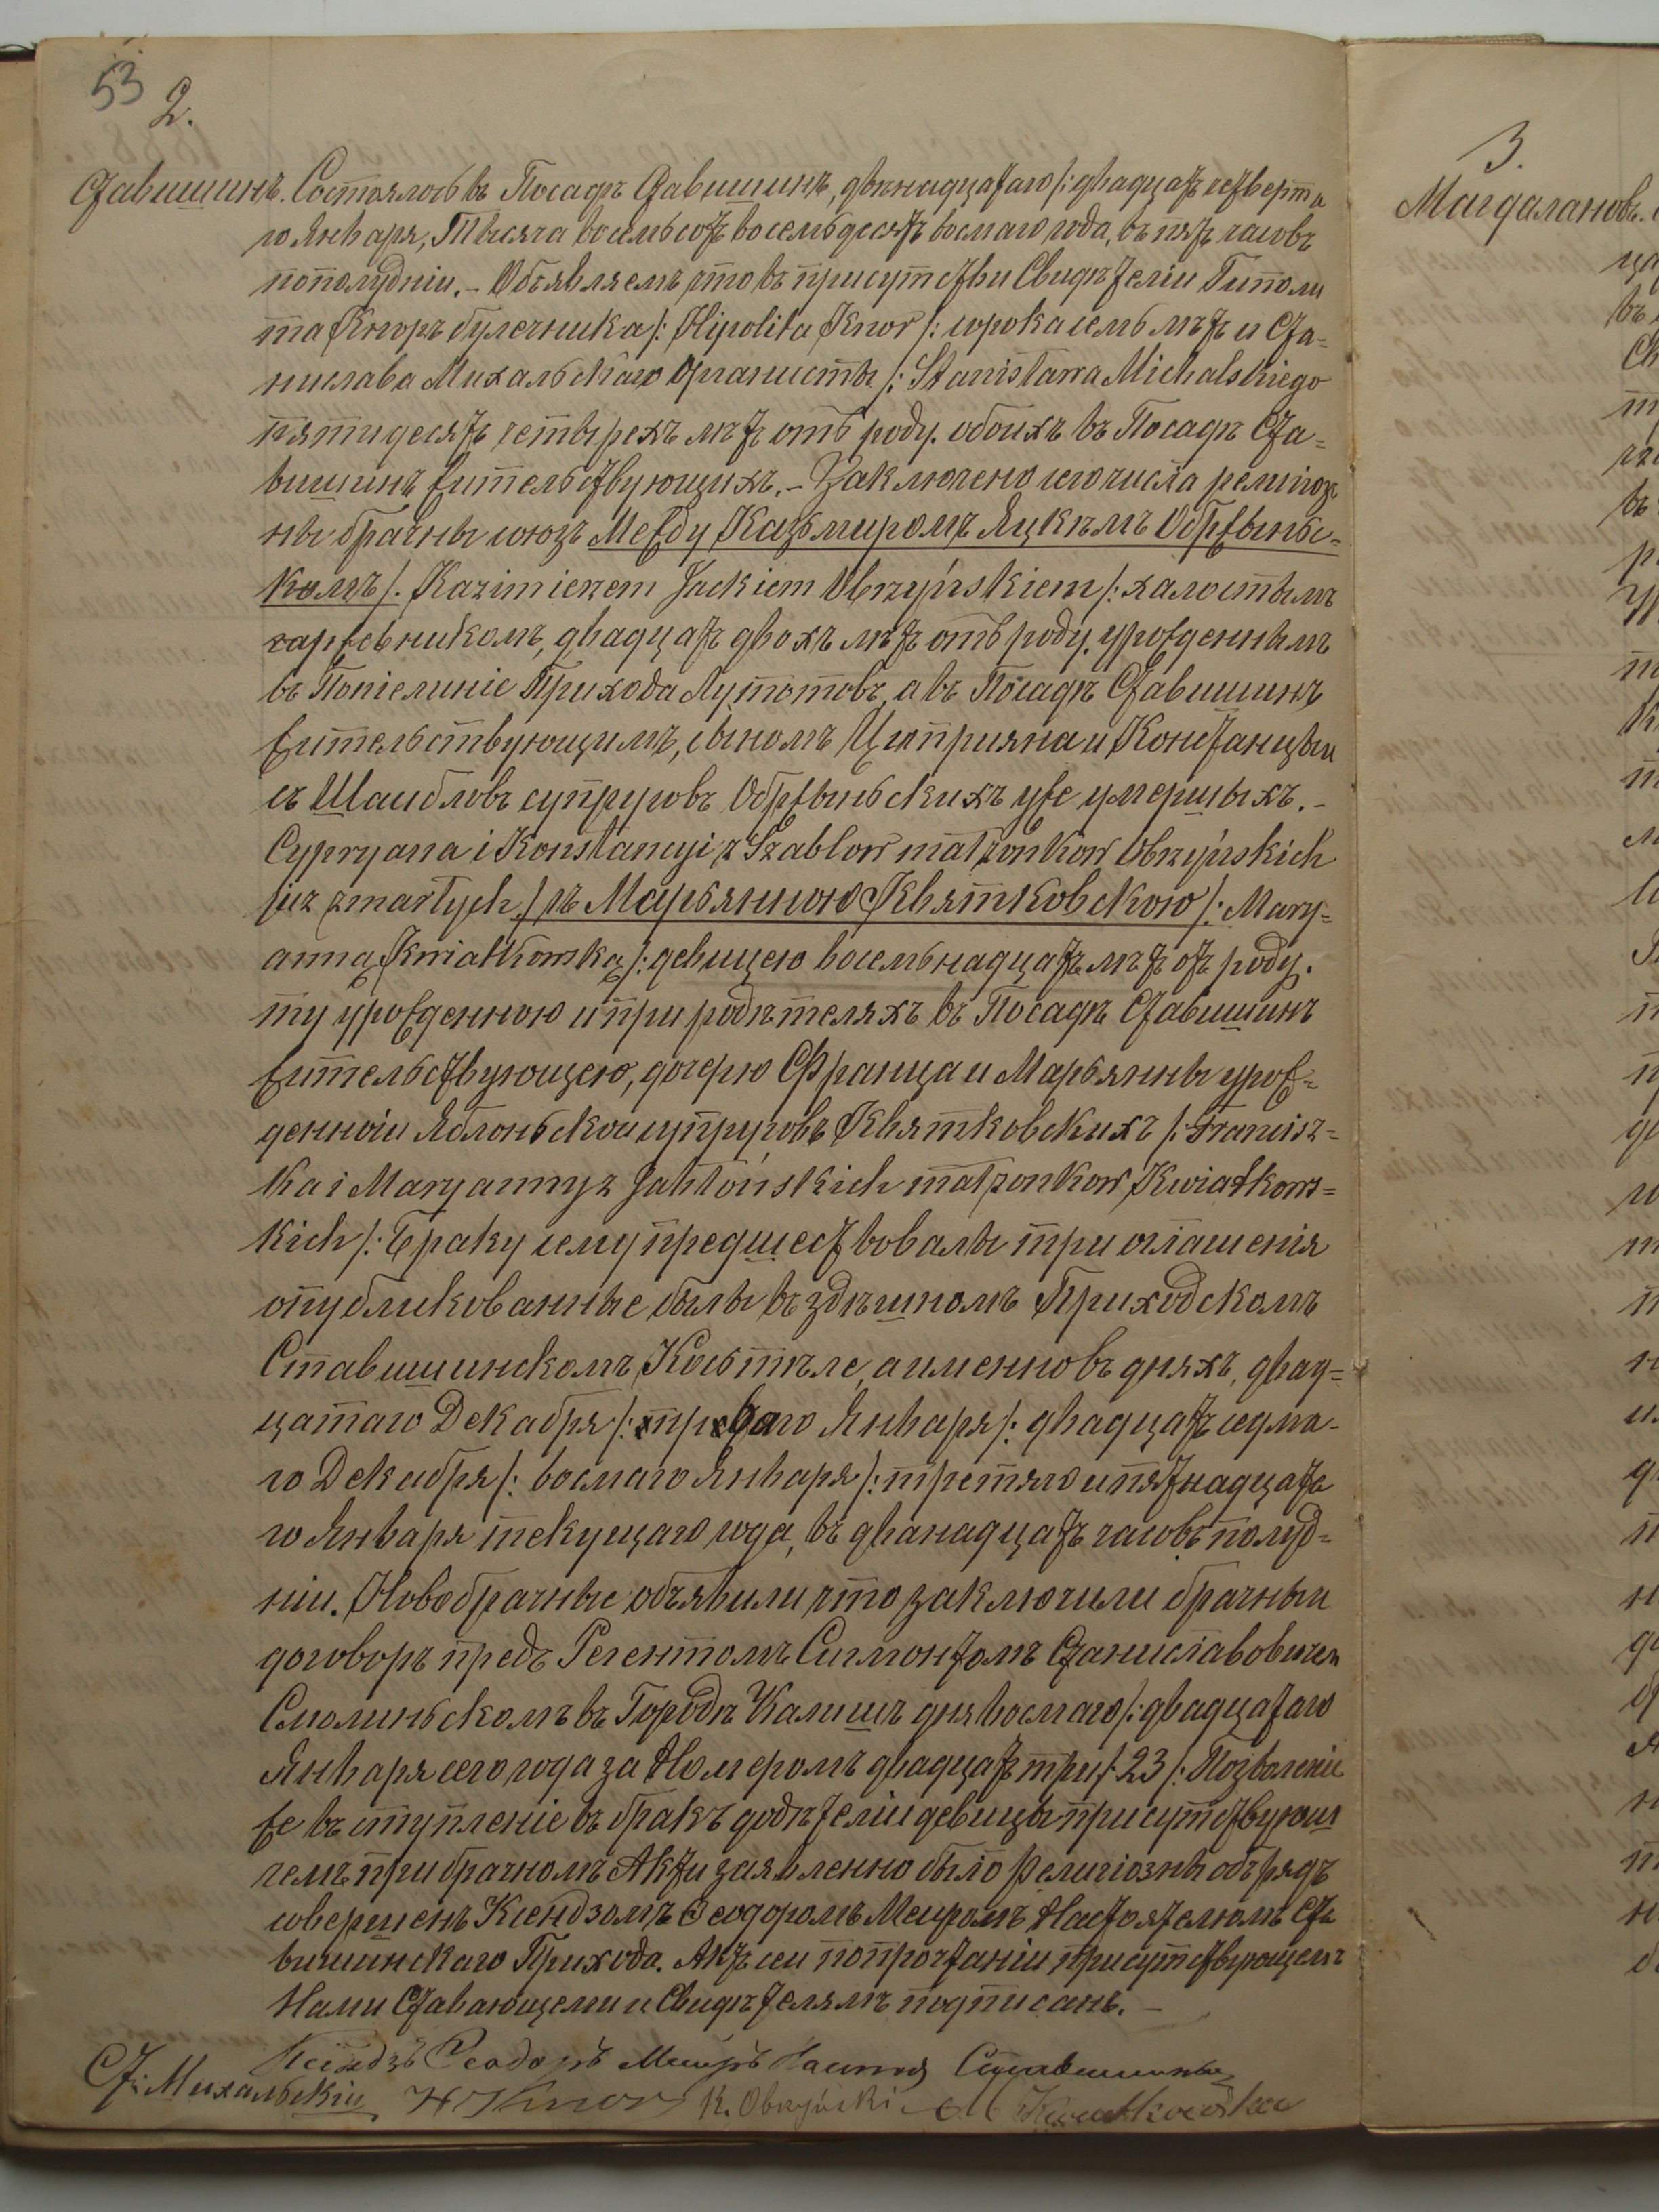 53 2.
Ставишинъ. Состоялось въ Посадѣ Ставишинѣ, двѣнадцатаго /: двадцать четверта
го Января, Тысяча восемьсотъ восемьдесятъ восмаго года, въ пять часовъ
пополудніи. – Объявляемъ что въ присутстви Свидѣтеліи Гиполи
та Кноръ булечника /: Hipolita Knor /: сорока семь лѣтъ и Ста=
нислава Михальскаго Органисты /: Stanisława Michalskiego
пятидесятъ четырехъ лѣтъ отъ роду. обоихъ въ Посадѣ Ста=
вишинѣ жительствующихъ. – Заключено сего числа религіоз
ны брачны союзъ Между Казьмиромъ Яцкѣмъ Обржыньс=
комъ /: Kazimierzem Jackiem Obrzyńskiem /: халостымъ
гарževникомъ, двадцать двохъ лѣтъ отъ роду, урожденнымъ
въ Попіелиніе Прихода Лутотовъ, а въ Посадѣ Ставишинѣ
жительствующимъ, сыномъ Циприяна и Констанцыи
съ Шаибловъ супруговъ Обржыньскихъ уже умершыхъ. –
Cypryana i Konstancyi z Szablow małżonkow Obrzyńskich
już zmarłych /: съ Марьянною Квятковскою /: Mary=
anną Kwiatkowską /: девицею восемьнадцать лѣтъ отъ роду.
ту урожденною и при родѣтеляхъ въ Посадѣ Ставишинѣ
жительствующею, дочерю Франца и Марьянны урож=
денноіи Яблоньской супруговъ Квятковскихъ /: Francisz=
ka i Maryanny z Jabłońskich małżonkow Kwiatkows=
kich /: Браку сему предшествовалы три оглашенія
опубликованные былы въ здѣшномъ Приходскомъ
Ставишинскомъ Костѣле, а именно въ дняхъ, двад=
цатаго Декабря /: перваго Января /: двадцать седма-
го Декабря /: восмаго Января /: третяго и пятнадцата
го Января текущаго года, въ дванадцать часовъ полуд=
ніи. Новобрачные объявили что заключили брачный
договоръ предъ Регентомъ Сигмонтомъ Станиславовичем
Смолиньскомъ въ Городѣ Калишъ дня восмаго /: двадцатаго
Января сего года за Номеромъ двадцать три /: 23 /: Позволеніе
же въ ступленіе въ бракъ родѣтеліи девицы присутствующ
чемъ при брачномъ Акти заявленно было религіозны обърядъ
совершенъ Ксендзомъ Ѳеодоромъ Меиромъ Настоятелюмъ Ста
вишинскаго Прихода. Актъ сеи по прочтаніи присутствующемъ
Нами Ставающеми и Свидѣтелямъ подписанъ. –
Ксендзъ Ѳеодоръ Меиръ Настоя Ставишинъ
Ст: Михальскіи H Knor K. Obrzyński M Kwiatkowska
3.
Магдалановъ.